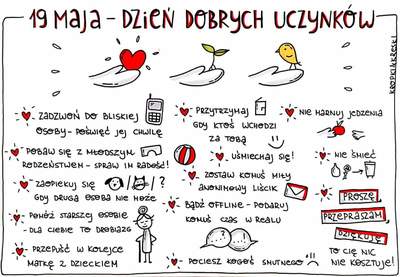 19 MAJA - DZIEŃ DOBRYCH UCZYNKÓW
KROPKI.I.KRESKI
ZADZWOŃ DO BLISKIEJ
OSOBY - POŚWIĘĆ JEJ CHWILĘ
POBAW SIĘ Z MŁODSZYM
RODZEŃSTWEM - SPRAW IM RADOŚĆ!
ZAOPIEKUJ SIĘ / / ?
GDY DRUGA OSOBA NIE MOŻE
POMÓŻ STARSZEJ OSOBIE
DLA CIEBIE TO DROBIAZG
PRZEPUŚĆ W KOLEJCE
MATKĘ Z DZIECKIEM
PRZYTRZYMAJ
GDY KTOŚ WCHODZI
ZA TOBĄ
UŚMIECHAJ SIĘ!
ZOSTAW KOMUŚ MIŁY
ANONIMOWY LIŚCIK
BĄDŹ OFFLINE - PODARUJ
KOMUŚ CZAS W REALU
POCIESZ KOGOŚ SMUTNEGO
NIE MARNUJ JEDZENIA
NIE ŚMIEĆ
PROSZĘ,
PRZEPRASZAM,
DZIĘKUJĘ
TO CIĘ NIC
NIE KOSZTUJE!